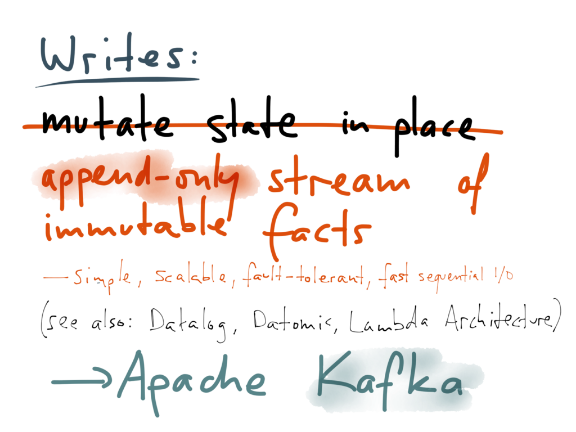 Writes:
mutate state in place
append-only stream of
immutable facts
— simple, scalable, fault-tolerant, fast sequential I/O
(see also: Datalog, Datomic, Lambda Architecture)
→ Apache Kafka